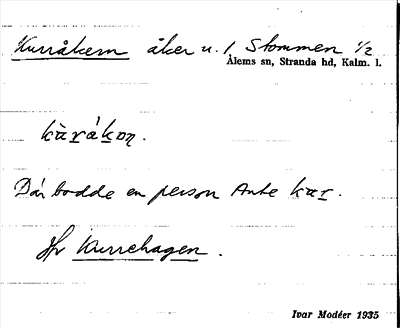 Kurråkern åker u. / Stommen 1/2
Ålems sn, Stranda hd, Kalm. l.
kàrákon.
Där bodde en person Ante kar.
Jfr Kurrehagen.
Ivar Modéer 1935